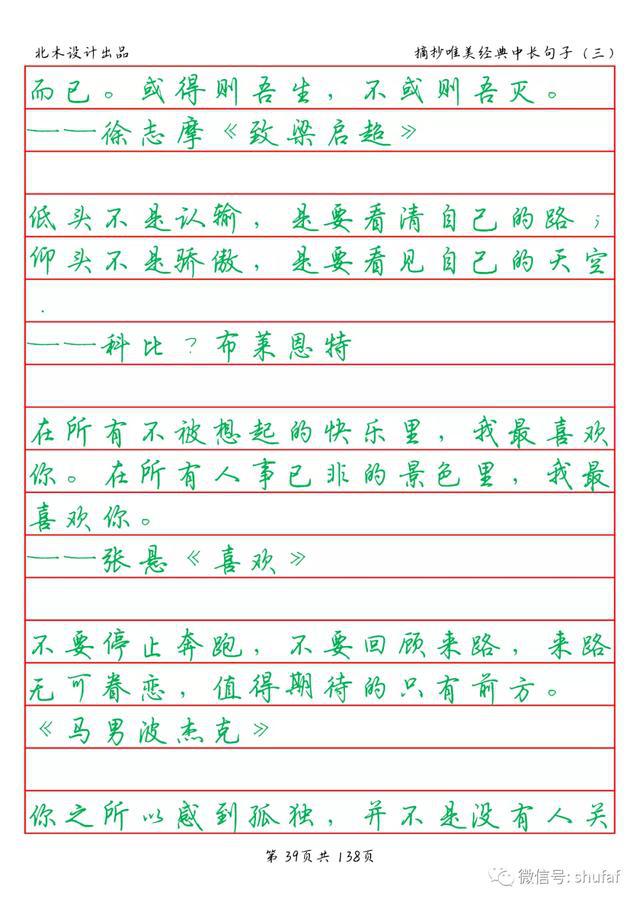 北木设计出品 摘抄唯美经典中长句子（三）
而已。或得则吾生，不或则吾灭。
——徐志摩《致梁启超》
低头不是认输，是要看清自己的路；
仰头不是骄傲，是要看见自己的天空
.
——科比？布莱恩特
在所有不被想起的快乐里，我最喜欢
你。在所有人事已非的景色里，我最
喜欢你。
——张悬《喜欢》
不要停止奔跑，不要回顾来路，来路
无可眷恋，值得期待的只有前方。
《马男波杰克》
你之所以感到孤独，并不是没有人关
第 39页共 138页
微信号: shufaf